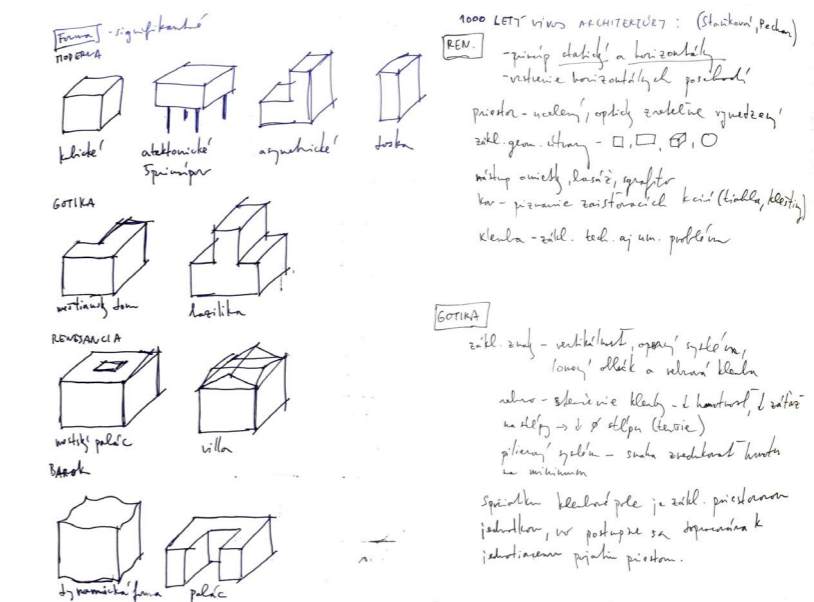 Forma - signifikantné
MODERNA
kubické
atektonické
5 princípov
asymetrické
doska
GOTIKA
meštiansky dom
bazilika
RENESANCIA
mestský palác
villa
BAROK
dynamická forma
palác
1000 LET VÝVOJ ARCHITEKTÚRY : (Staňková, Pechar)
REN.
- princíp statický a horizontály
- vrstvenie horizontálnych poschodí
priestor - ucelený, opticky zreteľne vymedzený
zákl. geom. útvary -
nástup omietky, bosáž, sgrafito
kov - priznanie zaisťovacích kcií (tiahla, kleštiny)
klenba - zákl. tech. aj um. problém
GOTIKA
zákl. znaky - vertikálnosť, oporný systém,
lomený oblúk a rebrová klenba
rebro - klenby - ↓ hmotnosť, ↓ záťaž
na stĺpy → ↓ ø stĺpu (tenšie)
pilierový systém - snaha zredukovať hmotu
na minimum
klenbové pole je zákl. priestorovou
jednotkou, no postupne sa dopracováva k
jednotiacemu pojatiu priestoru.